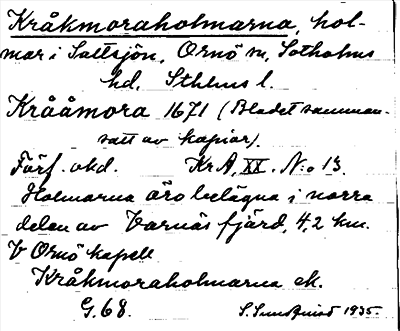 Kråkmoraholmarna, hol-
mar i Saltsjön, Ornö sn, Sotholms
hd, Sthlms l.
Krååmora 1671 (Bladet samman-
satt av kopior).
Förf. okd. Kr A, XX. N:o 13.
Holmarna äro belägna i norra
delen av Varnäs fjärd, 4,2 km.
V Ornö kapell
Kråkmoraholmarna ek.
G. 68. S. Sundquist 1935.